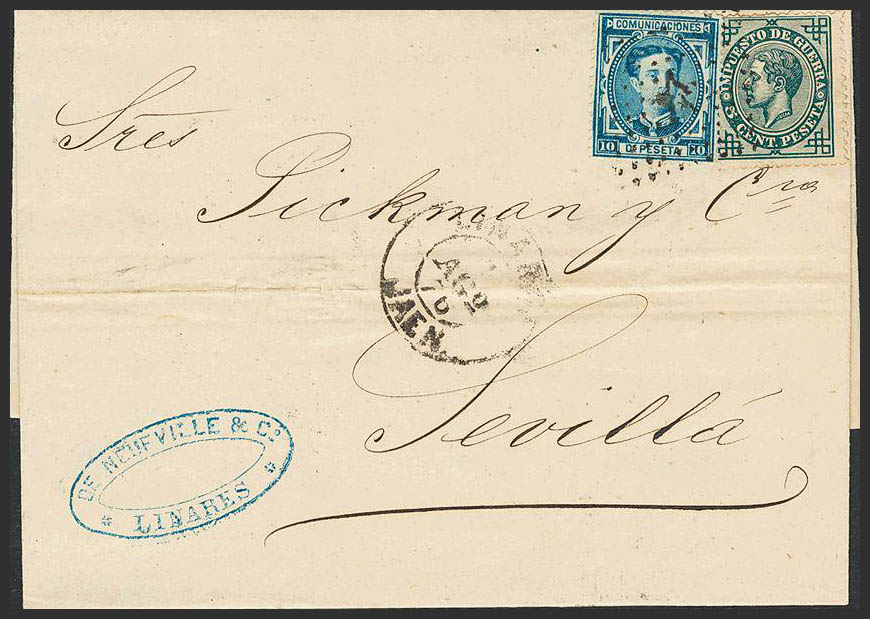 COMUNICACIONES
10 C. PESETA 10
IMPUESTO DE GUERRA
5 CENT. PESETA
Sres
Pickman y Cia
LINAR
AGO
76
JAEN.
Sevilla
DE NEUFVILLE & Co
* LINARES *